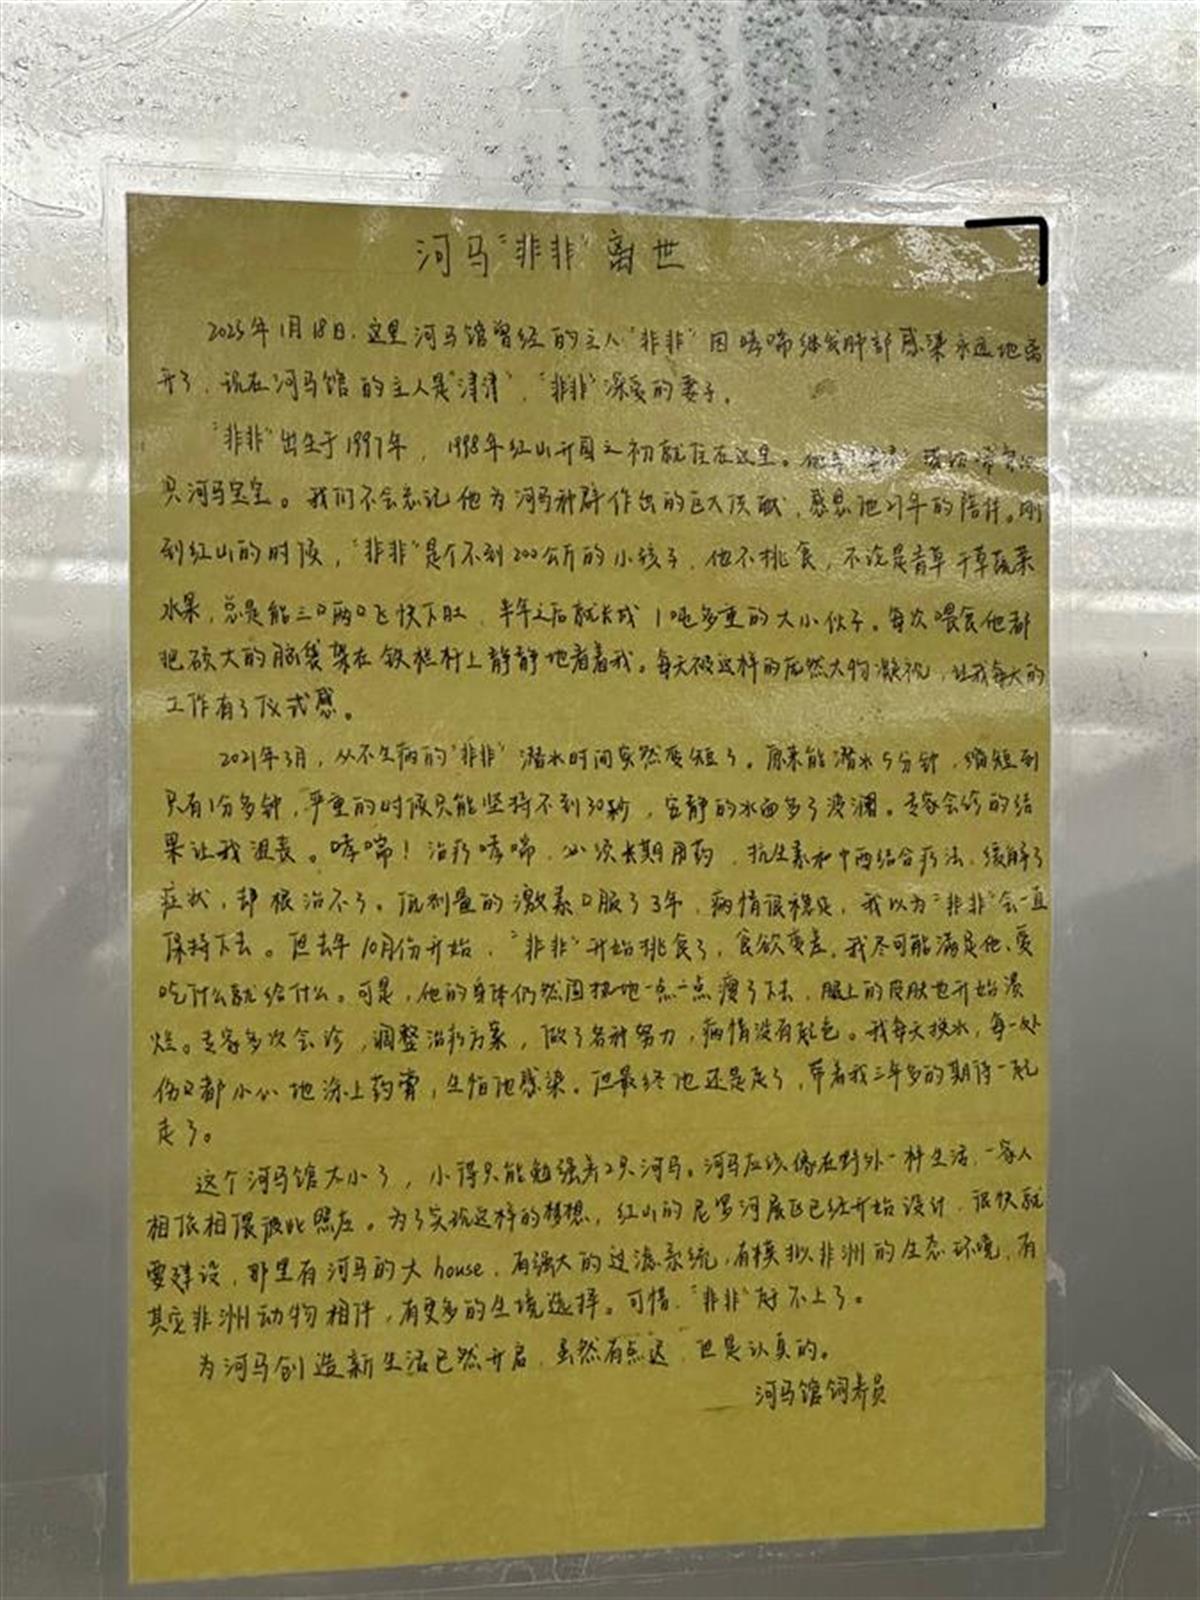 河马“非非”离世
2025年1月18日，这里河马馆曾经的主人“非非”因哮喘继发肺部感染永远地离
开了，现在河马馆的主人是“津津”，“非非”深爱的妻子。
“非非”出生于1997年，1998年红山开园之初就住在这里。他
只河马宝宝。我们不会忘记他为河马种群作出的巨大贡献，感恩他27年的陪伴。刚
到红山的时候，“非非”是个不到200公斤的小孩子，他不挑食，不论是青草干草蔬菜
水果，总是能三口两口飞快下肚，半年之后就长成1吨多重的大小伙子。每次喂食他都
把硕大的脑袋架在铁栏杆上静静地看着我。每天被这样的庞然大物凝视，让我每天的
工作有了仪式感。
2021年3月，从不生病的“非非”潜水时间突然变短了。原来能潜水5分钟，缩短到
只有1分多钟，严重的时候只能坚持不到30秒，安静的水面多了波澜。专家会诊的结
果让我沮丧。哮喘！治疗哮喘，必须长期用药，抗生素和中西结合疗法，缓解了
症状，却根治不了。低剂量的激素口服了3年，病情很稳定，我以为“非非”会一直
保持下去。但去年10月份开始，“非非”开始挑食了，食欲变差，我尽可能满足他、爱
吃什么就给什么。可是，他的身体仍然固执地一点一点瘦了下去，腿上的皮肤也开始溃
烂。专家多次会诊，调整治疗方案，做了各种努力，病情没有起色。我每天换水，每一处
伤口都小心地涂上药膏，生怕他感染。但最终他还是走了，带着我三年多的期待一起
走了。
这个河马馆太小了，小得只能勉强养2只河马。河马应该像在野外一种生活，一家人
相依相偎彼此照应。为了实现这样的梦想，红山的尼罗河展区已经开始设计，很快就
要建设，那里有河马的大house，有强大的过滤系统，有模拟非洲的生态环境，有
其它非洲动物相伴，有更多的生境选择。可惜，“非非”赶不上了。
为河马创造新生活已然开启，虽然有点迟，但是认真的。
河马馆饲养员